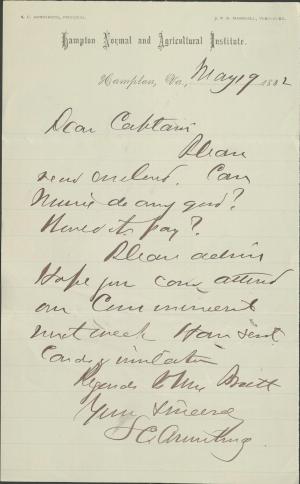 S. C. ARMSTRONG, PRINCIPAL. J. F. B. MARSHALL, TREASURER.
Hampton Normal and Agricultural Institute.
Hampton, Va., May 19 1882
Dear Captain
Please
read enclosed. Can
do any good?
pay?
Please advise
Hope you can attend
our Commencement
next week Have sent
Card of invitation
Regards to Mrs Pratt
Yours Sincerely
S C Armstrong